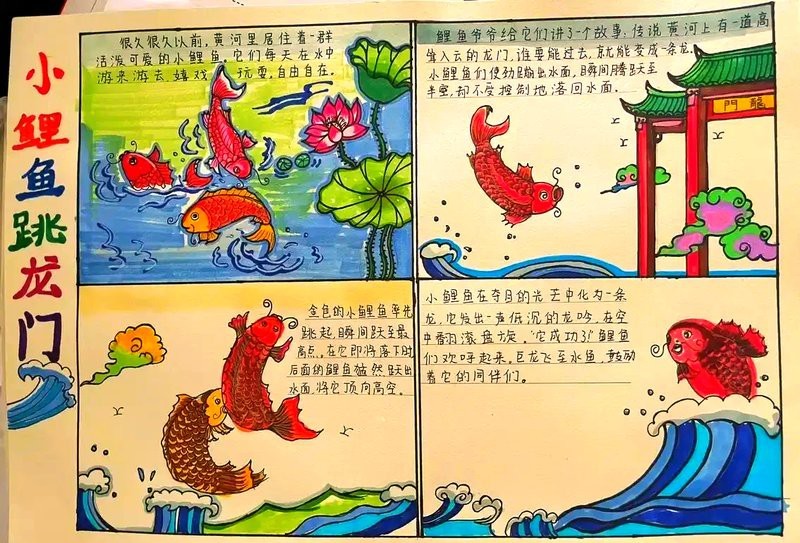 小鲤鱼跳龙门
很久很久以前,黄河里居住着一群
活泼可爱的小鲤鱼,它们每天在水中
游来游去嬉戏、玩耍,自由自在。
鲤鱼爷爷给它们讲了一个故事:传说黄河上有一道高
耸入云的龙门,谁要能过去,就能变成一条龙。
小鲤鱼们使劲蹦出水面,瞬间腾跃至
半空,却不受控制地落回水面。
門龍
金色的小鲤鱼率先
跳起,瞬间跃至最
高点,在它即将落下时
后面的鲤鱼猛然跃出
水面,将它顶向高空。
小鲤鱼在夺目的光芒中化为一条
龙,它发出一声低沉的龙吟,在空
中翻滚盘旋,它成功了!鲤鱼
们欢呼起来,巨龙飞至水鱼,鼓励
着它的同伴们。